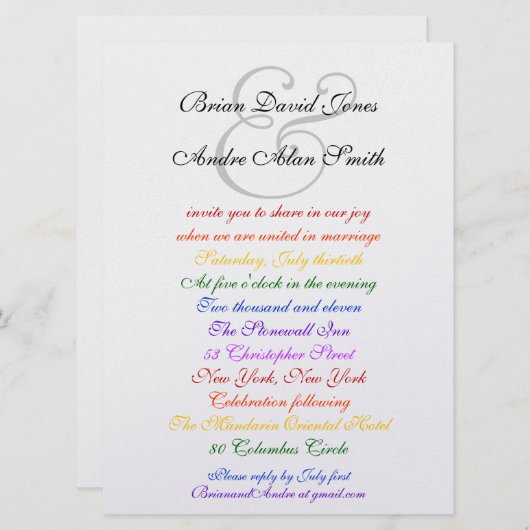 &
Brian David Jones
Andre Alan Smith
invite you to share in our joy
when we are united in marriage
Saturday, July thirtieth
At five o'clock in the evening
Two thousand and eleven
The Stonewall Inn
53 Christopher Street
New York, New York
Celebration following
The Mandarin Oriental Hotel
80 Columbus Circle
Please reply by July first
BrianandAndre at gmail.com